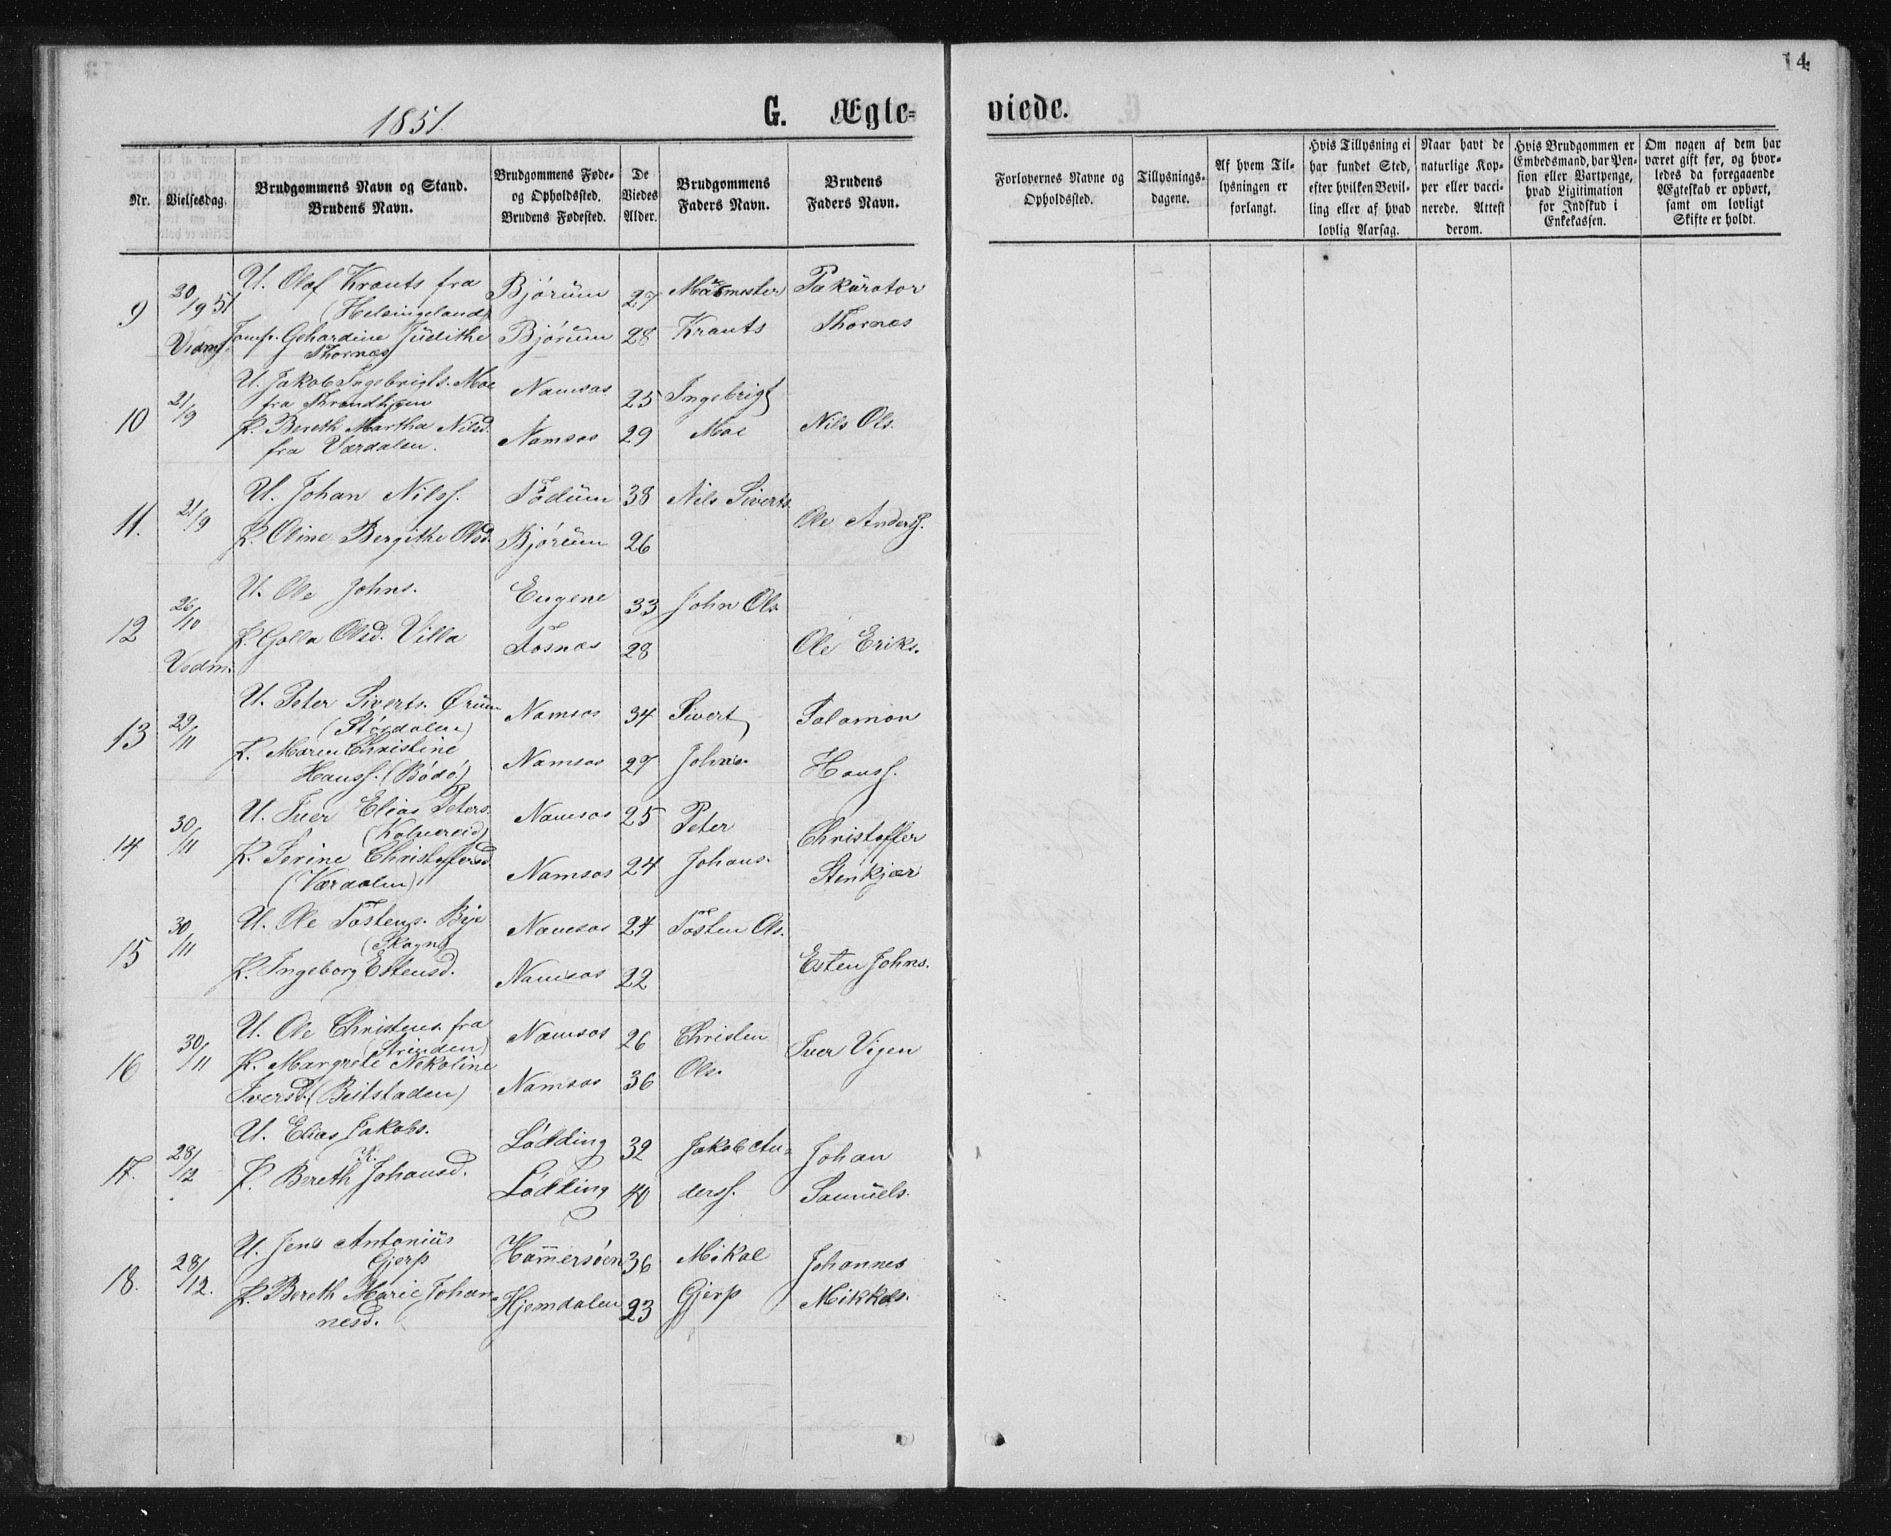 14.
1851.
G. Ægte=
viede.
Nr.
Vielsesdag.
Brudgommens Navn og Stand.
Brudens Navn.
Brudgommens Føde-
og Opholdssted.
Brudens Fødested.
De
Viedes
Alder.
Brudgommens
Faders Navn.
Brudens
Faders Navn.
Forlovernes Navne og
Opholdssted.
Tillysnings-
dagene.
Af hvem Til-
lysningen er
forlangt.
Hvis Tillysning ei
har fundet Sted,
efter hvilken Bevil-
ling eller af hvad
lovlig Aarsag.
Naar havt de
naturlige Kop-
per eller vacci-
nerede. Attest
derom.
Hvis Brudgommen er
Embedsmand, har Pen-
sion eller Vartpenge,
hvad Ligitimation
for Indskud i
Enkekassen.
Om nogen af dem har
været gift før, og hvor-
ledes da foregaaende
Ægteskab er ophørt,
samt om lovligt
Skifte er holdt.
9 20/9 51 U. Olaf Krants fra Bjørum 27
(Helsingeland)
Jomfr. Gehardine Judithe Bjørum 28 Krants Thornæs
Thornæs
10 21/9 U. Jakob Ingebrigts. Moe Namsos 25 Ingebrigt
fra Throndhjem
P. Bereth Martha Nilsd. Namsos 29 Moe Nils Ols.
fra Værdalen.
11. 21/9 U. Johan Nilss. Fødum 38 Nils Siverts.
P. Oline Bergithe Olsd. Bjørum 26 Ole Anderss.
12 26/10 U. Ole Johns. 33 John Ols.
P. Golla Olsd. Villa Fosnæs 28 Ole Eriks.
Vedm.
13 29/11 U. Peter Siverts. Ørum Namsos 34 Sivert Salamon
(Størdalen)
P. Maren Christine Namsos 27 Johns. Hanss.
Hanss. (Bodø)
14 30/11 U. Iver Elias Peters. Namsos 25 Peter Christoffer
(Kolvereid)
P. Serine Christoffersd. Namsos 24 Johans. Stenkjær
(Værdalen)
15 30/11 U. Ole Tostens. Bye Namsos 24 Tosten Ols.
(Skogn)
P. Ingeborg Estensd. Namsos 22 Esten Johns.
16 30/11 U. Ole Christens. fra Namsos 26 Christen Iver Vigen
(Strinden)
P. Margrete Nekoline Ols.
Iversd. (Beitstaden) Namsos 36
17. 28/12 U. Elias Jakobs. Lødding 32 Jakob An- Johan
P. Bereth K. Johansd. Lødding 40 derss. Samuels.
18. 28/12. U. Jens Antonius Hammersøen 36 Mikal Johannes
Gjerp
P. Bereth Marie Johan- Hjemdalen 23 Gjerp Mikkels.
nesd.